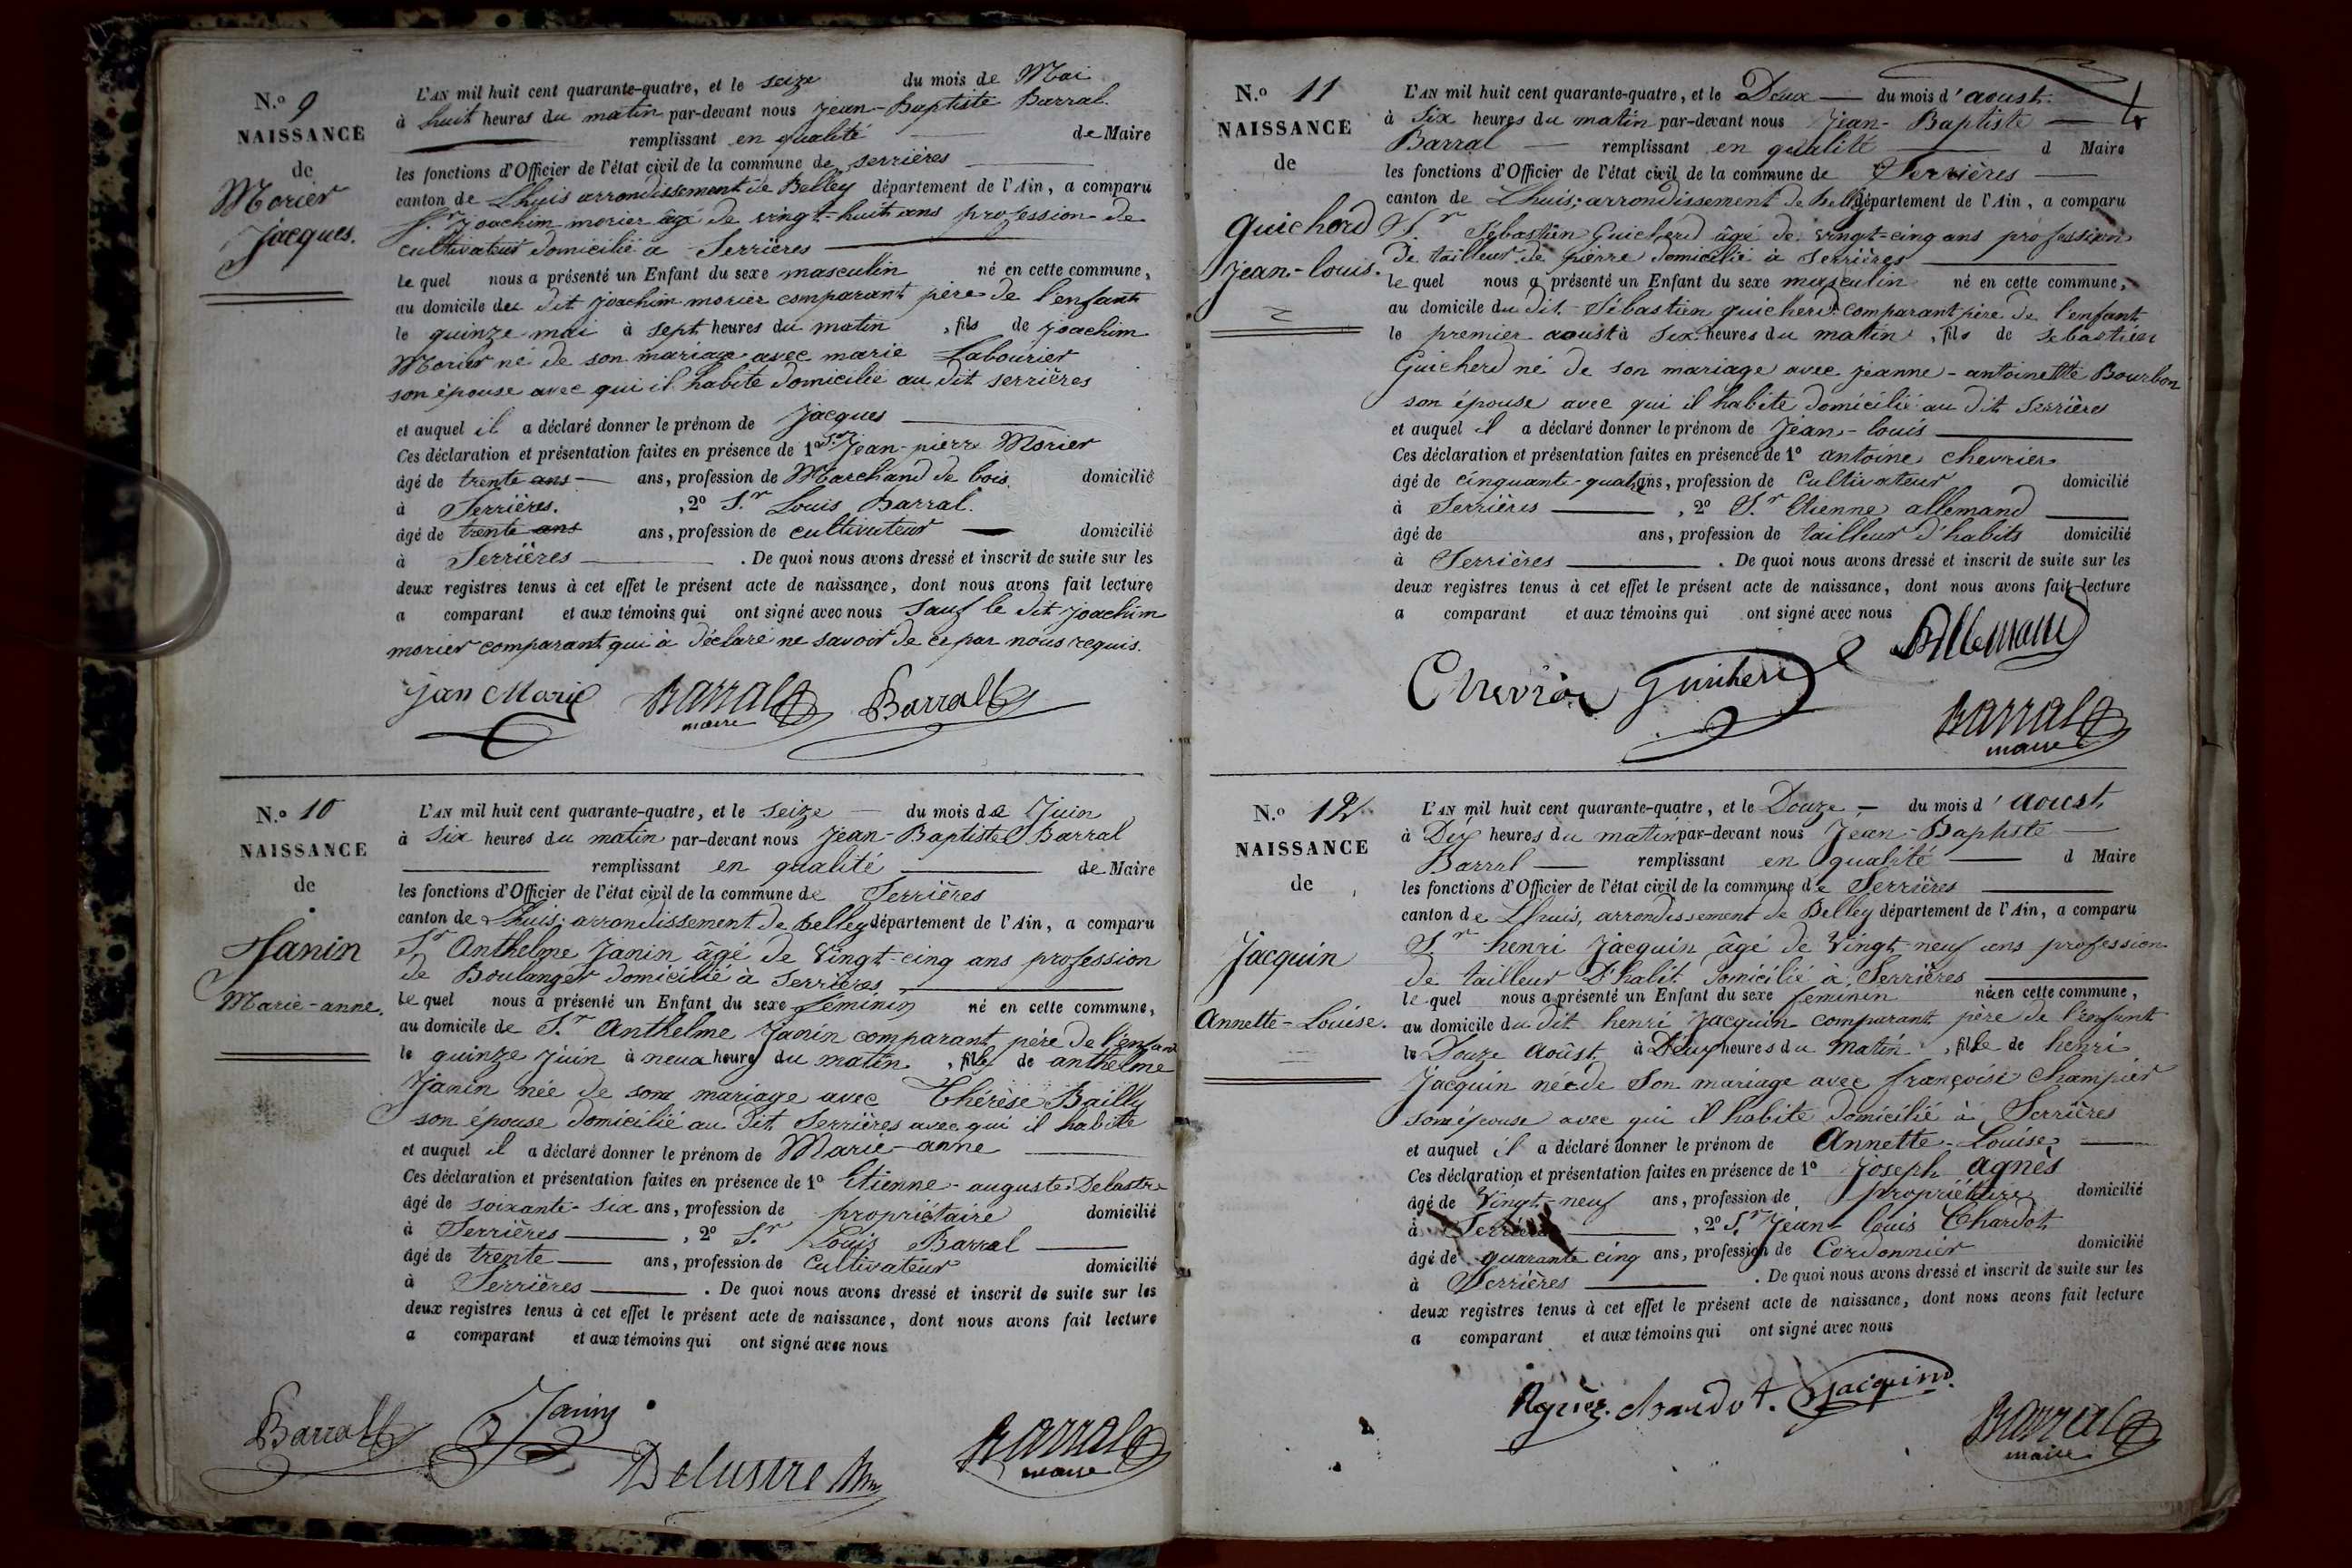 N.o 9
NAISSANCE
de
Morier
Jacques.
L'AN mil huit cent quarante-quatre, et le seize du mois de Mai
à huit heures du matin par-devant nous Jean-Baptiste Barral.
remplissant en qualité de Maire
les fonctions d'Officier de l'état civil de la commune de serrières
canton de Lhuis arrondissement de Belley département de l'Ain, a comparu
Sr. Joachim morier âgé de vingt-huit ans profession de
cultivateur domicilié à Serrières
le quel nous a présenté un Enfant du sexe masculin né en cette commune,
au domicile du dit Joachim morier comparant père de l'enfant
le quinze mai à sept heures du matin, fils de joachim
Morier né de son mariage avec marie Labourier
son épouse avec qui il habite domicilié au dit serrières
et auquel il a déclaré donner le prénom de Jacques
Ces déclaration et présentation faites en présence de 1o Sr. Jean-pierre Morier
âgé de trente ans ans, profession de Marchand de bois. domicilié
à Serrières. , 2o Sr. Louis Barral.
âgé de trente ans ans, profession de cultivateur domicilié
à Serrières . De quoi nous avons dressé et inscrit de suite sur les
deux registres tenus à cet effet le présent acte de naissance, dont nous avons fait lecture
a comparant et aux témoins qui ont signé avec nous sauf le dit Joachim
morier comparant qui à déclaré ne savoir de ce par nous requis.
jan Morie Barral Barral
maire
N.o 10
NAISSANCE
de
Janin
Marie-anne.
L'AN mil huit cent quarante-quatre, et le seize du mois de Juin
à six heures du matin par-devant nous Jean-Baptiste Barral
remplissant en qualité de Maire
les fonctions d'Officier de l'état civil de la commune de Serrières
canton de Lhuis, arrondissement de Belley département de l'Ain, a comparu
Sr Anthelme Janin âgé de Vingt-cinq ans profession
de Boulanger domicilié à Serrières
le quel nous a présenté un Enfant du sexe féminin né en cette commune,
au domicile de Sr Anthelme Janin comparant père de l'enfant
le quinze juin à neua heures du matin, fille de anthelme
Janin née de son mariage avec Thérèse Bailly
son épouse domicilié au dit Serrières avec qui il habite
et auquel il a déclaré donner le prénom de Marie-anne
Ces déclaration et présentation faites en présence de 1o Etienne-auguste Delastre
âgé de soixante-six ans, profession de propriétaire domicilié
à Serrières , 2o Sr Louis Barral
âgé de trente ans, profession de Cultivateur domicilié
à Serrières . De quoi nous avons dressé et inscrit de suite sur les
deux registres tenus à cet effet le présent acte de naissance, dont nous avons fait lecture
a comparant et aux témoins qui ont signé avec nous
Barral Janin
Delustre Barral
maire
N.o 11
NAISSANCE
de
Guicherd
Jean-louis.
L'AN mil huit cent quarante-quatre, et le Deux du mois d'aoust.
à Six heures du matin par-devant nous Jean-Baptiste
Barral remplissant en qualité d Maire
les fonctions d'Officier de l'état civil de la commune de Serrières
canton de Lhuis, arrondissement de belley département de l'Ain, a comparu
Sr Sébastien Guicherd âgé de vingt-cinq ans profession
de tailleur de pierre domicilié à Serrières
le quel nous a présenté un Enfant du sexe masculin né en cette commune,
au domicile du dit Sébastien guicherd comparant père de l'enfant
le premier aoust à Six heures du matin, fils de Sebastien
Guicherd né de son mariage avec jeanne-antoinette Bourbon
son épouse avec qui il habite domicilié au dit Serrières
et auquel il a déclaré donner le prénom de Jean-louis
Ces déclaration et présentation faites en présence de 1o antoine chevrier
âgé de cinquante-quatre ans, profession de Cultivateur domicilié
à Serrières , 2o Sr. Etienne allemand
âgé de ans, profession de tailleur d'habits domicilié
à Serrières . De quoi nous avons dressé et inscrit de suite sur les
deux registres tenus à cet effet le présent acte de naissance, dont nous avons fait lecture
a comparant et aux témoins qui ont signé avec nous
Allemand
Chevrier Guicherd
Barral
maire
N.o 12
NAISSANCE
de
Jacquin
Annette-Louise.
L'AN mil huit cent quarante-quatre, et le Douze du mois d'Aoust,
à Dix heures du matin par-devant nous Jean-Baptiste
Barral remplissant en qualité d Maire
les fonctions d'Officier de l'état civil de la commune de Serrières
canton de Lhuis, arrondissement de Belley département de l'Ain, a comparu
Sr henri Jacquin âgé de Vingt-neuf ans profession
de tailleur d'habit domicilié à Serrières
le quel nous a présenté un Enfant du sexe feminin née en cette commune,
au domicile du dit henri Jacquin comparant père de l'enfant
le Douze Août à Deux heures du Matin, fille de henri
Jacquin née de Son mariage avec françoise Champier
son épouse avec qui il habite domicilié à Serrières
et auquel il a déclaré donner le prénom de Annette-Louise
Ces déclaration et présentation faites en présence de 1o Joseph agnès
âgé de Vingt-neuf ans, profession de propriétaire domicilié
à Serrières , 2o Sr Jean-louis Chardot
âgé de quarante cinq ans, profession de Cordonnier domicilié
à Serrières . De quoi nous avons dressé et inscrit de suite sur les
deux registres tenus à cet effet le présent acte de naissance, dont nous avons fait lecture
a comparant et aux témoins qui ont signé avec nous
Agnès. chardot. Jacquin.
Barral
maire